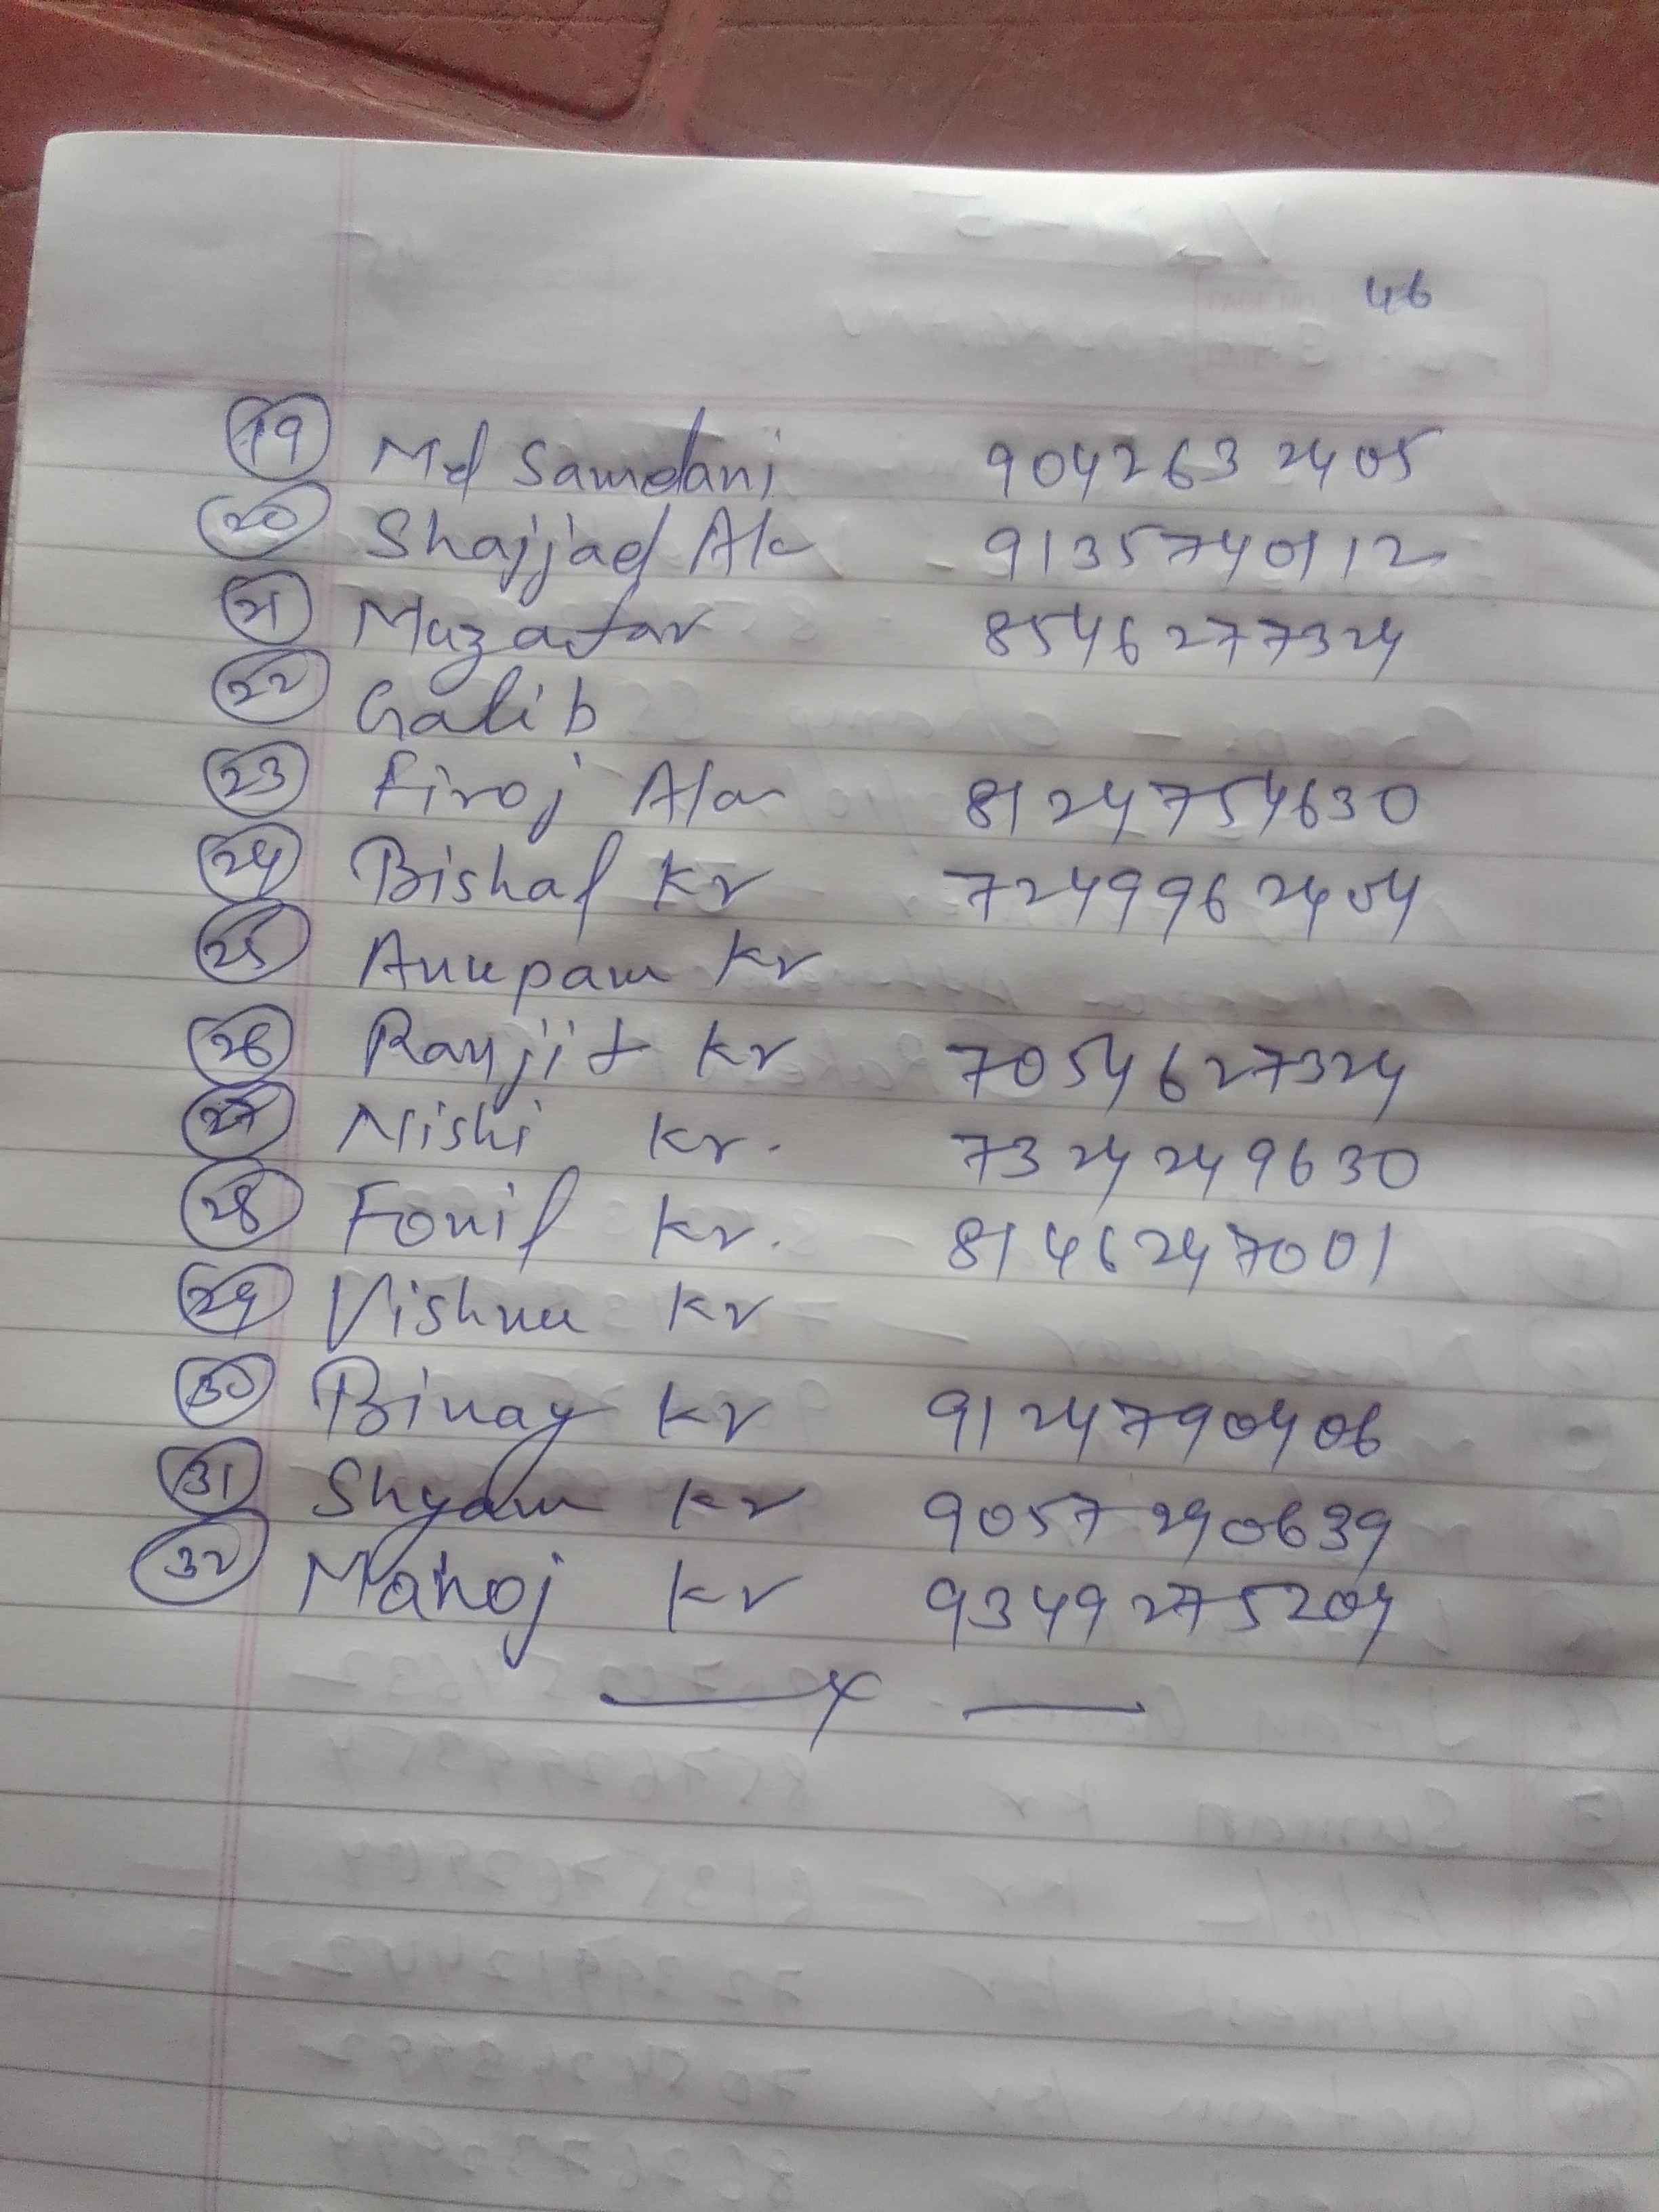 46
19 Md Samdani 9042632405
20 Shajjad Ala 9135740112
21 Muzafar 8546277324
22 Galib
23 Firoj Ala 8124754630
24 Bishal Kr 7249962404
25 Anupam Kr
26 Ranjit Kr 7054627324
27 Nishi Kr. 7324249630
28 Fonil Kr. 8146247001
29 Vishnu Kr
30 Binay Kr 9124790406
31 Shyam Kr 9057290639
32 Manoj Kr 9349275204
— x —